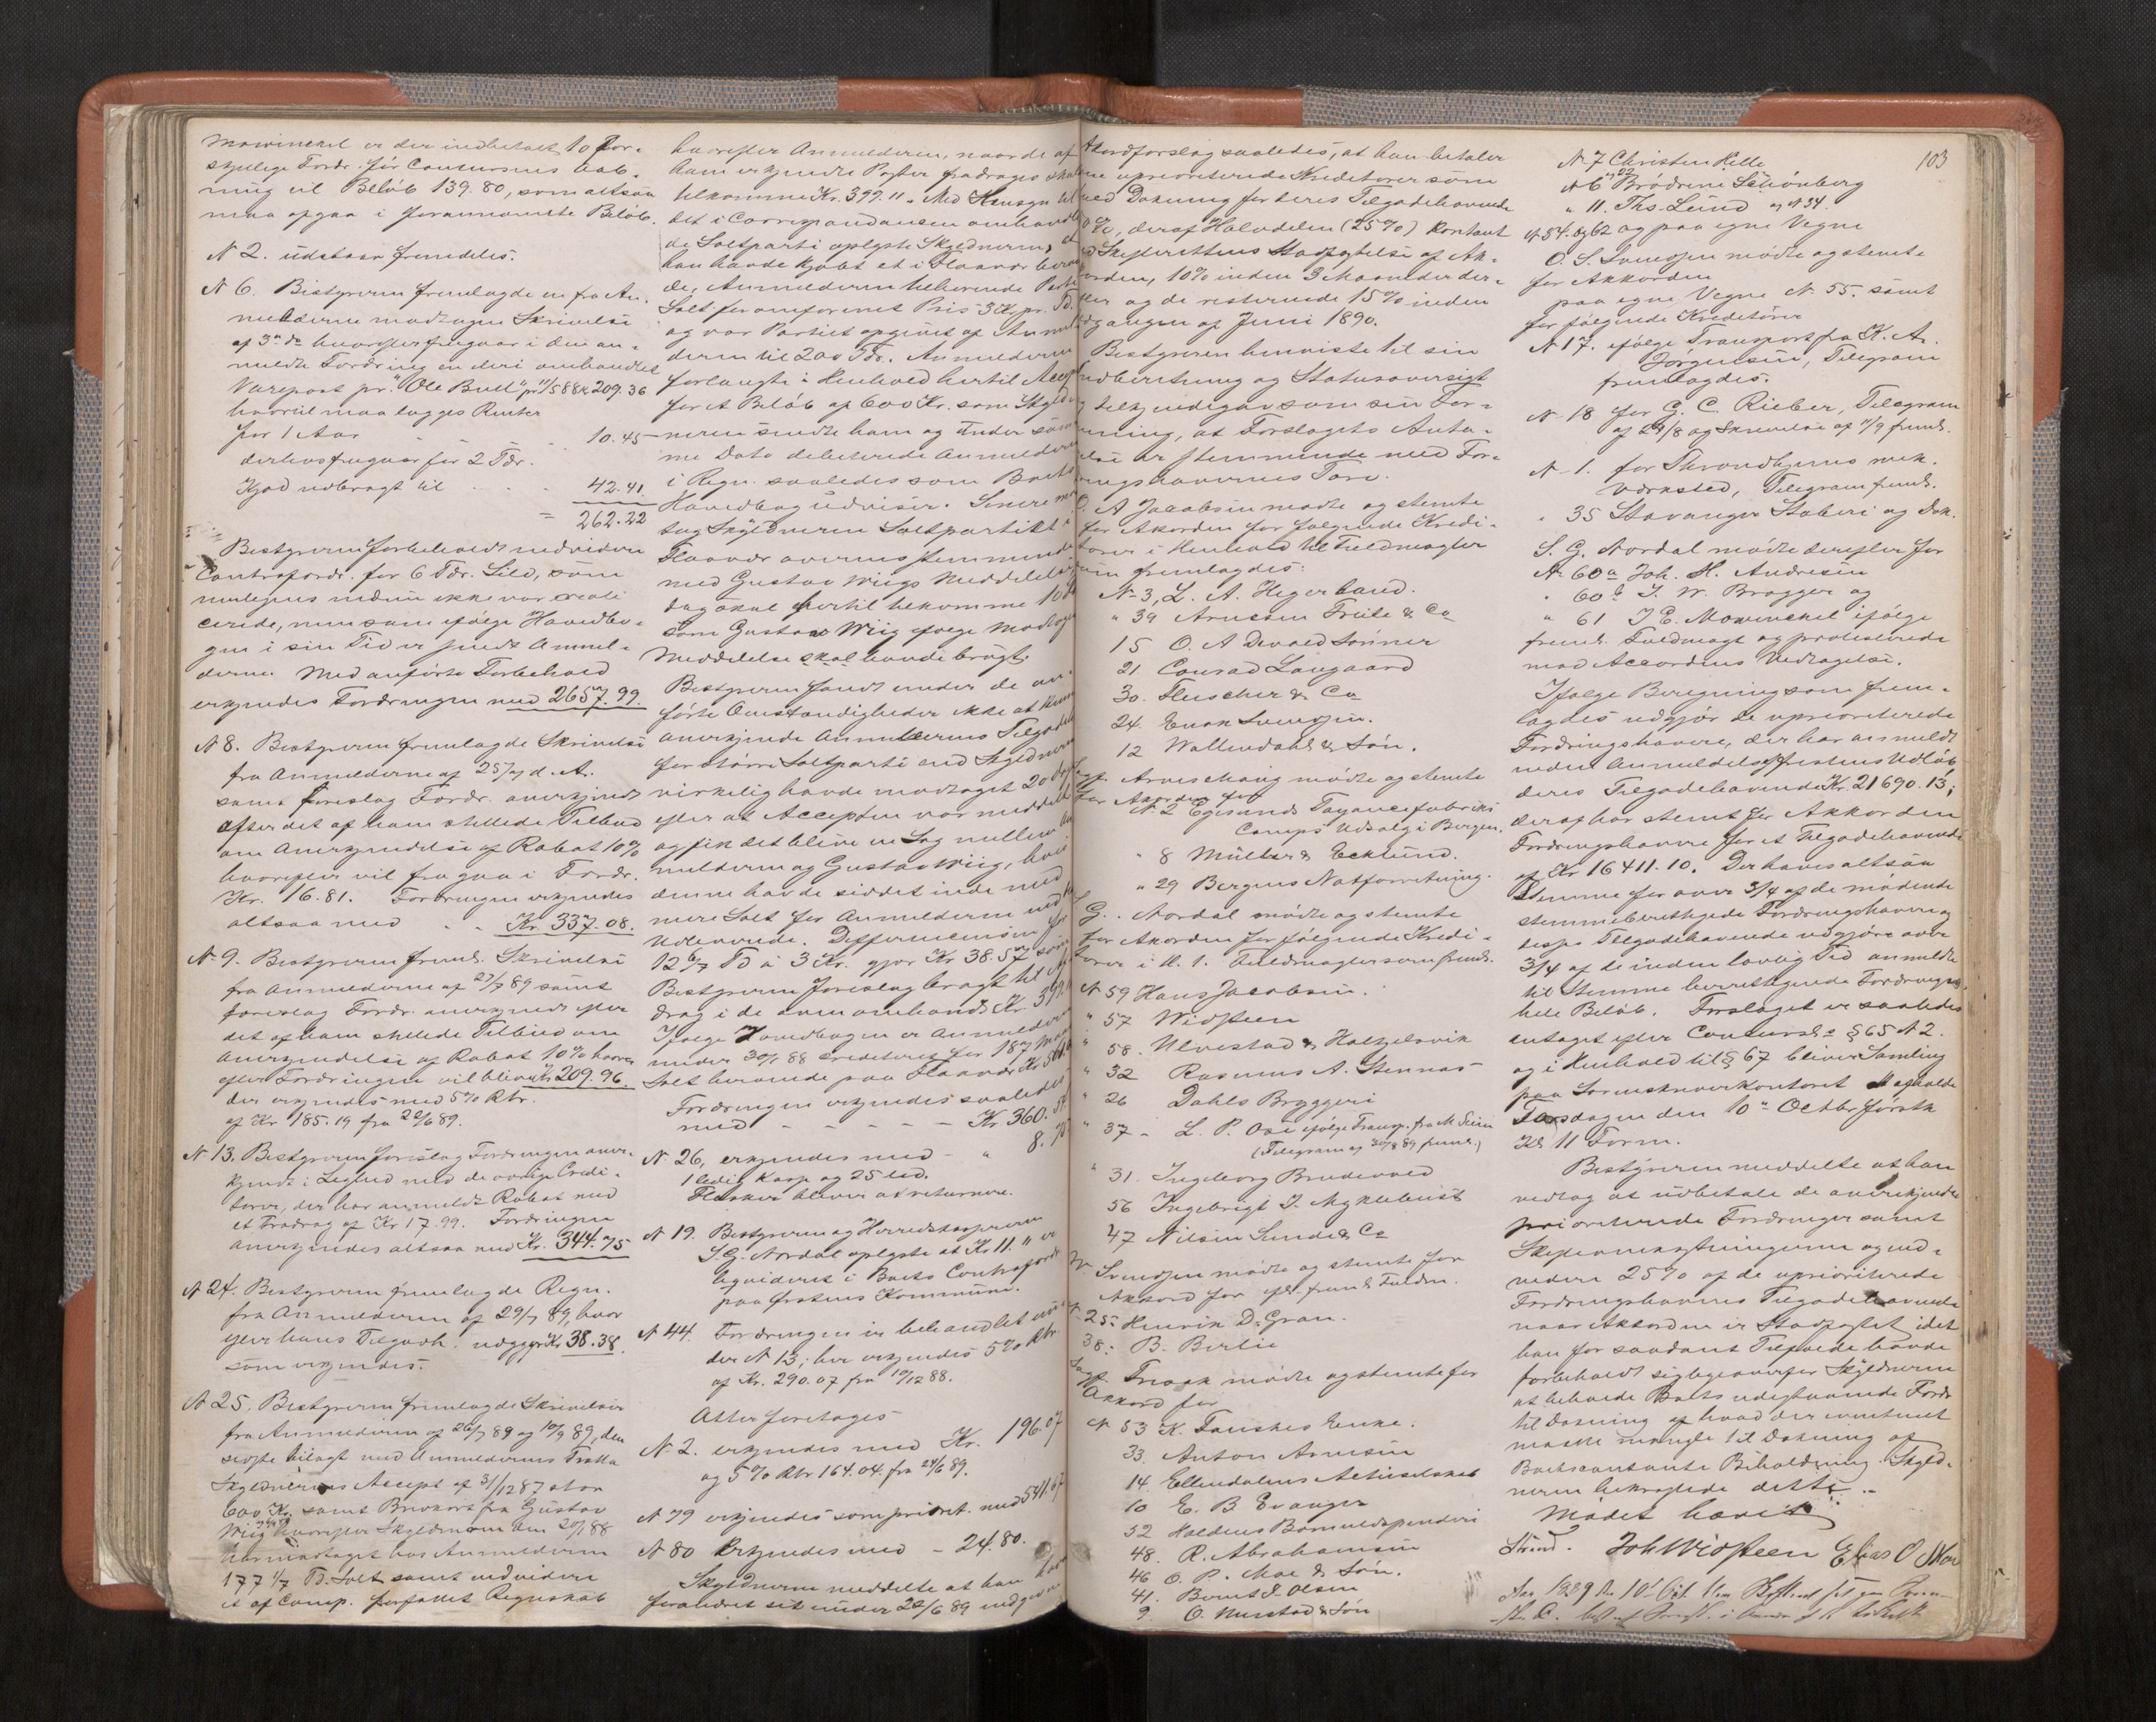 Mowinckel er der indbetalt 10 For-
skjellige Fordr. før Concursens Aab-
ning til Beløb 139.80, som altsaa
maa afgaa i forannævnte Beløb.
N 2. udstaar fremdeles.
N 6. Bestyreren fremlagde en fra An-
melderne modtagen Skrivelse
af 3die ds hvorefter fragaar i den an-
meldte Fordring en deri omhandlet
Varepost pr. "Ole Bull" pr 11/5 88 Kr 209.36
hvortil maa lægges Renter
for 1 Aar 10.45
derhos fragaar for 2 Tdr.
Kjød udbragt til 42.41
= 262.22
Bestyreren forbeholdt endvidere
Contrafordr. for 6 Tdr. Sild, som
muligens endnu ikke var
cerede, men som ifølge Hovedbo-
gen i sin Tid er sendt Anmel-
derne. Med anførte Forbehold
erkjendes Fordringen med 2657.99.
N 8. Bestyreren fremlagde Skrivelse
fra Anmelderne af 25/7 d. A.
samt foreslog Fordr. anerkjendt
efter det af ham stillede Tilbud
om Anerkjendelse af Rabat 10%
hvorefter vil fragaa i Fordr.
Kr. 16.81. Fordringen erkjendes
altsaa med Kr. 337.08.
N 9. Bestyreren freml. Skrivelse
fra Anmelderne af 27/7 89 samt
foreslog Fordr. anerkjendt efter
det af ham stillede Tilbud om
Anerkjendelse af Rabat 10% hvor-
efter Fordringen vil blive Kr 209.96.
der erkjendes med 5% Rtr.
af Kr 185.19 fra 22/6 89.
N 13. Bestyreren foreslog Fordringen aner-
kjendt i Lighed med de øvrige Credi-
torer, der har anmeldt Rabat med
et Fradrag af Kr 17.99. Fordringen
anerkjendes altsaa med Kr. 344.75
N 24. Bestyreren fremlagde Regn.
fra Anmelderen af 29/7 89, hvor
efter hans Tilgodh. udgjør Kr 38.38.
som erkjendes.
N 25. Bestyreren fremlagde Skrivelser
fra Anmelderen af 26/7 89 og 10/9 89, den
sidste bilagt med Anmelderens Tratta
Skyldnerens Accept af 31/12 87 stor
600 Kr. samt Brevkort fra Gustav
Wiig hvorefter Skyldneren den 20/1 88
har modtaget hos Anmelderen
177 1/7 Td. Salt samt endvidere
et af Comp. forfattet Regnskab
hvorefter Anmelderen, naar de af
ham erkjendte Poster fradrages skal
tilkomme Kr. 399.11. Med Hensyn til
det i Correspondancen omhandle-
de Saltparti oplyste Skyldneren, at
han havde kjøbt et i Flaavær bero
de, Anmelderen tilhørende Parti
Salt for omforenet Pris 3 Kr. pr. Td.
og var Partiet opgivet af Anmel-
deren til 200 Tdr. Anmelderen
forlangte i Henhold hertil Accept
for et Beløb af 600 Kr. som Skyld-
neren sendte ham og under sam-
me Dato debiterede Anmelderen
i Regn. saaledes som Boets
Hovedbog udviser. Senere mod-
tog Skyldneren Saltpartiet i
Flaavær overensstemmende
med Gustav Wiigs Meddelelse
dog skal hertil bekomme
som Gustav Wiig ifølge modtagen
Meddelelse skal havde brugt.
Bestyreren fandt under de an-
førte Omstændigheder ikke at kunne
anerkjende Anmelderens Tilgodeh.
for større Saltparti end Skyldneren
virkelig havde modtaget 20 Dage
efter at Accepten var meddelt
og fik det blive en Sag mellem An-
melderen og Gustav Wiig, hvis
denne havde siddet inde med
mere Salt for Anmelderen end
udleverede. Differencen for
12 6/7 Td a 3 Kr. gjør Kr 38.57 som
Bestyreren foreslog bragt til af-
drag i de ovenomhandl. Kr. 399.11
Ifølge Hovedbogen er Anmelderen
under 30/1 88 krediteret for 187 Tdr
Salt beroende paa Flaavær Kr 561.
Fordringen erkjendes saaledes
med - - - - - Kr 360.54
N 26, erkjendes med - " 8.70
1 ledig Kasse og 25 led.
Flasker bliver at returnere.
N 19. Bestyreren og Herredskasserer
S. G. Nordal oplyste at Kr 11." er
ligvideret i Boets Contrafordr.
paa Ørstens Kommune.
N 44. Fordringen er behandlet un-
der N 13; her erkjendes 5% Rtr
af Kr. 290.07 fra 19/12 88.
Atter foretages
N 2. erkjendes med Kr. 196.07
og 5% Rtr 164.04. fra 24/6 89.
N 79 erkjendes som prioret. med 541.67
N 80 Erkjendes med - 24.80.
Skyldneren meddelte at han
forandret sit under 22/6 89 indgivne
Akordforslag saaledes, at han betaler
sine uprioriterede Kreditorer som
med Dækning for deres Tilgodehavende
50%, deraf Halvdelen (25%) Kontant
ved Skifterettens Stadfæstelse af Ak-
korden, 10% inden 3 Maaneder der-
efter og de resterende 15% inden
Udgangen af Juni 1890.
Bestyreren henviste til sin
Indberetning og Statusoversigt
og tilkjendegav som sin For-
mening, at Forslagets Anta-
gelse er stemmende med For-
dringshavernes Tarv.
O. A Jacobsen mødte og stemte
for Akorden for følgende Kredi-
torer i Henhold til Fuldmagter
som fremlagdes:
N 3, L. A. Hegerland.
" 39 Arnesen Friele & Co
15 O. A Devold Sønner
21. Conrad Langaard
30. Fleischer & Co
24. Enok Svendsen.
12 Wallendahl & Søn.
Sagf. Arneschaug mødte og stemte
for Akorden for
N. 2 Egersunds Fayancefabriks
Comps Udsalg i Bergen.
" 8 Müller & Ecklund.
" 29 Bergens Notforretning.
S G. Nordal mødte og stemte
for Akorden for følgende Kredi-
torer i H. t. Fuldmagter som freml.
N 59 Hans Jacobsen
" 57 Widsteen
" 58. Ulvestad & Holzelsvik
" 32 Rasmus A. Stennæs
" 26 Dahls Bryggeri
" 37 - L. P. Ose ifølge Transp. fra M Seim
(Telegram af 30/8 89 freml.)
" 31. Ingeborg Brudevold
56 Ingebrigt J. Myklebust
47 Nilsen Sunde & Co
Svendsen mødte og stemte for
Akkord for eft. freml. Fuldm.
N 25: Henrik D. Gran.
38: B. Birlie
Sagf. Traak mødte og stemte for
Akkord for
N 53 K. Fauskes Enke.
33. Anton Arnesen
14. Ellendalens Actieselskab
10 E. B Evanger
52 Haldens Bomuldspinderi
48. R. Abrahamsen
46 O. P. Moe & Søn.
41. Bernt J. Olsen
9. O. Nerstad & Søn
103
N 7 Christen Kille
N 6 " 22 Brødrene Schönberg
" 11. Ths. Lund og N 34.
N 54. og 62 og paa egne Vegne
O. S. Svendsen mødte og stemte
for Akkorden
paa egne Vegne N. 55. samt
for følgende Kreditorer
N 17. ifølge Transport fra K. A.
Jørgensen, Telegram
fremlagdes.
N 18 for G. C. Rieber, Telegram
af 29/8 og Skrivelse af 11/9 freml.
N 1. for Throndhjems mek.
Værksted, Telegram freml.
" 35 Stavanger Støberi og Dok.
S. G. Nordal mødte derefter for
N. 60a Joh. H. Andresen
" 60b J. W. Brøgger og
" 61 J E. Mowinckel ifølge
freml. Fuldmagt og protesterede
mod Accordens Vedtagelse.
Ifølge Beregning som frem-
lagdes udgjør de uprioriterede
Fordringshavere, der har anmeldt
inden Anmeldelsesfristens Udløb
deres Tilgodehavende Kr. 21690.13;
deraf har stemt for Akkorden
Fordringshavere for et Tilgodehavende
af Kr 16411.10. Der haves altsaa
Stemme for over 3/4 af de mødende
stemmeberettigede Fordringshavere og
disses Tilgodehavende udgjøre over
3/4 af de inden lovlig Tid anmeldte
til Stemme berettigende Fordringers
hele Beløb. Forslaget er saaledes
antaget efter Concursl. § 65 N 2.
og i Henhold til § 67 bliver Samling
paa Sorenskriverkontoret at afholde
Torsdagen den 10de Octbr førstk
Kl 11 Form.
Bestyreren meddelte at han
vedtog at udbetale de anerkjendte
prioriterede Fordringer samt
Skifteomkostningerne og end-
videre 25% af de uprioriterede
Fordringshavers Tilgodehavende
naar Akkorden er Stadfæstet, idet
han for saadant Tilfælde havde
forbeholdt sig ligeoverfor Skyldneren
at beholde Boets udestaaende Fordr
til Dækning af hvad der eventuelt
maatte mangle til Dækning af
Boets contante Beholdning. Skyld-
neren bekræftede dette.
Mødet hævet
Strand. Joh Widsteen Elias O Moe
Aar 1889 den 10de Oct.